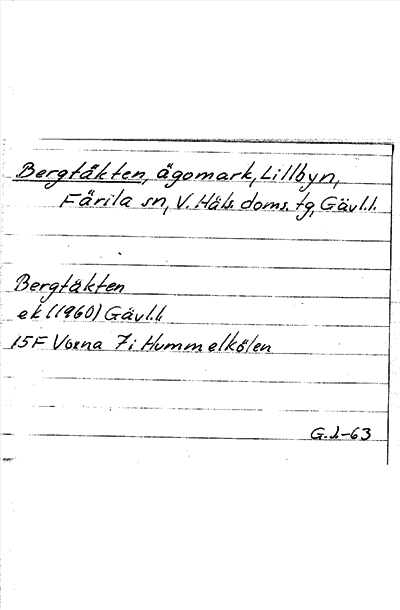 Bergtäkten, ägomark, Lillbyn,
Färila sn, V. Häls. doms. tg, Gävl.l.
Bergtäkten
ek (1960) Gävl.l.
15F Voxna 7i Hummelkölen
G.J.-63